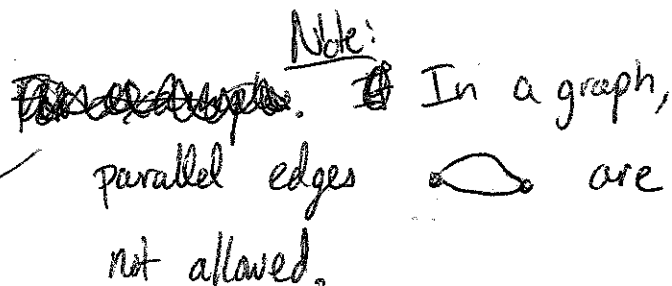 Note:
In a graph,
parallel edges are
not allowed.